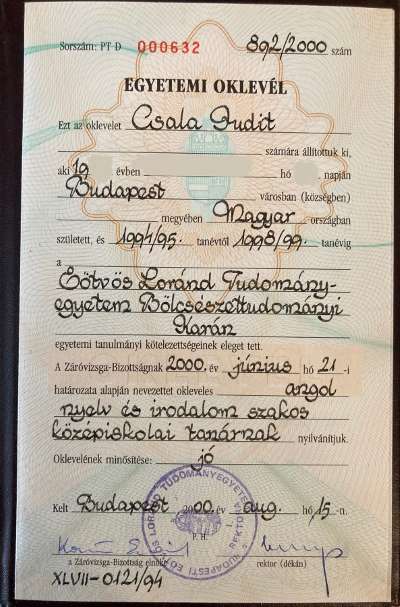 Sorszám: PT D 000632 892/2000 szám
EGYETEMI OKLEVÉL
Ezt az oklevelet Csala Judit
számára állítottuk ki,
aki 19 évben hó napján
Budapest városban (községben)
megyében Magyar országban
született, és 1994/95. tanévtől 1998/99. tanévig
a
Eötvös Loránd Tudomány-
egyetem Bölcsészettudományi
Karán
egyetemi tanulmányi kötelezettségeinek eleget tett.
A Záróvizsga-Bizottságnak 2000. év június hó 21-i
határozata alapján nevezettet okleveles angol
nyelv és irodalom szakos
középiskolai tanárnak nyilvánítjuk.
Oklevelének minősítése: jó
Kelt Budapest 2000. év aug. hó 15-n.
P. H.
a Záróvizsga-Bizottság elnöke rektor (dékán)
XLVII-0121/94